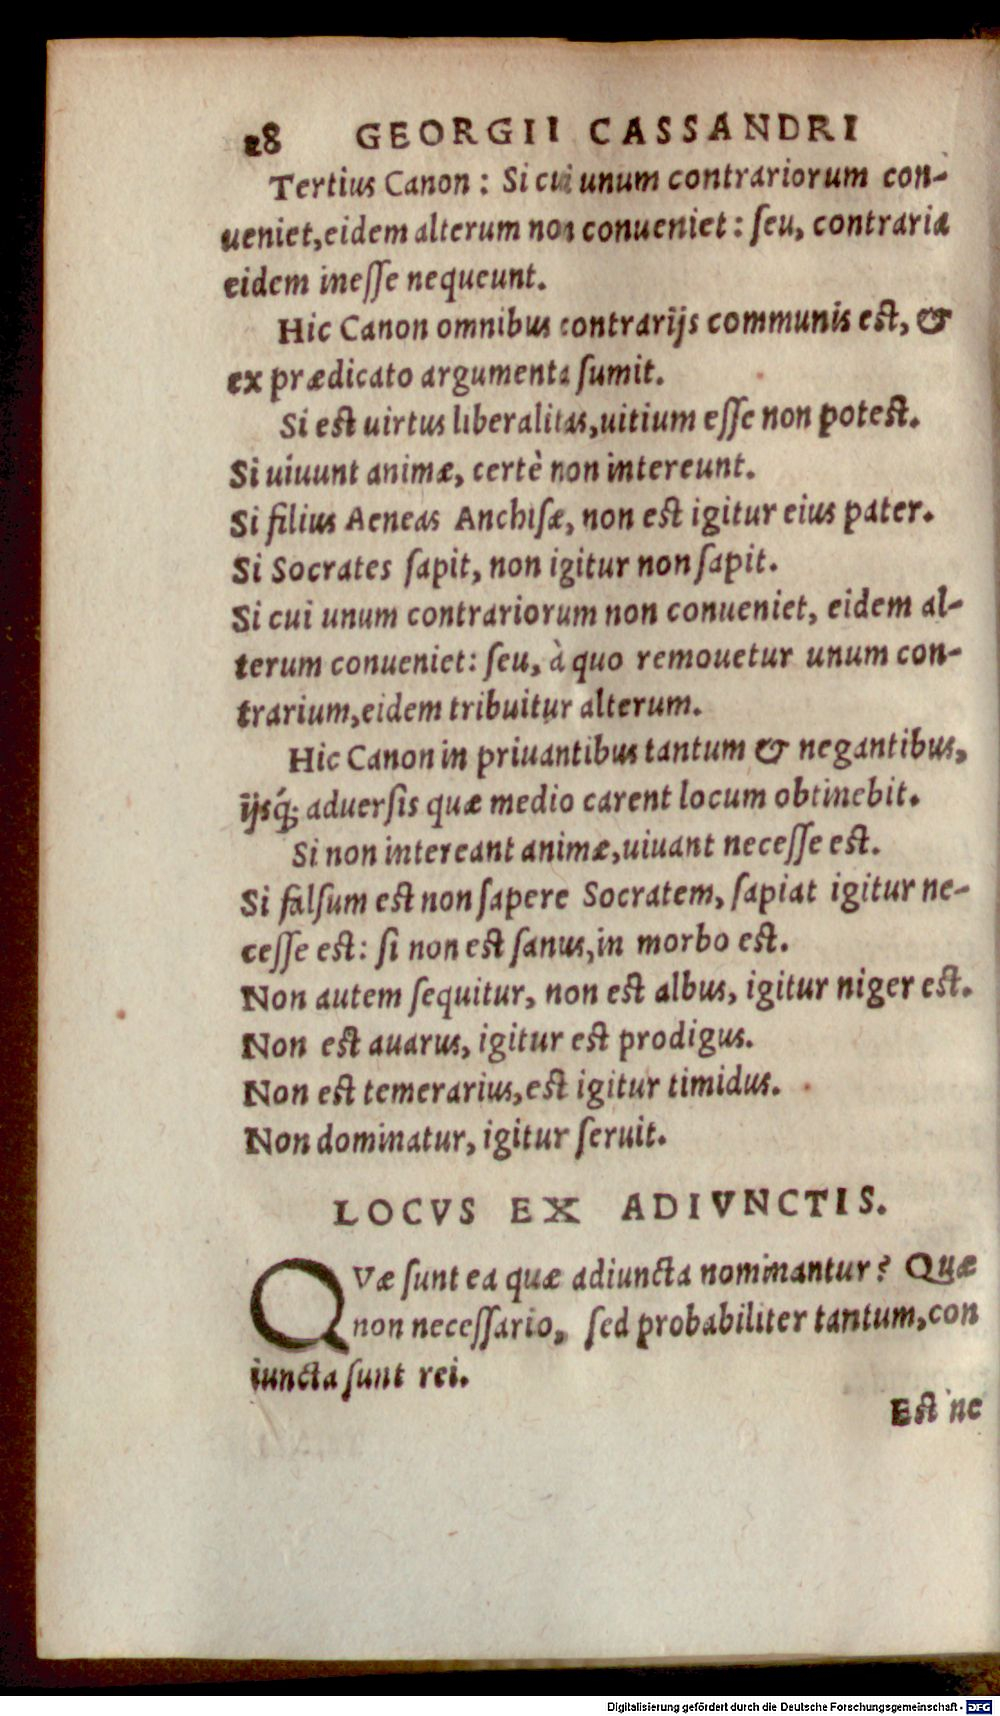 28 GEORGII CASSANDRI
Tertius Canon: Si cui unum contrariorum con-
ueniet, eidem alterum non conueniet: ſeu, contraria
eidem ineſſe nequeunt.
Hic Canon omnibus contrarijs communis est, &
ex prædicato argumenta ſumit.
Si est uirtus liberalitas, uitium eſſe non potest.
Si uiuunt animæ, certè non intereunt.
Si filius Aeneas Anchiſæ, non est igitur eius pater.
Si Socrates ſapit, non igitur non ſapit.
Si cui unum contrariorum non conueniet, eidem al-
terum conueniet: ſeu, à quo remouetur unum con-
trarium, eidem tribuitur alterum.
Hic Canon in priuantibus tantum & negantibus,
ijsq́; aduerſis quæ medio carent locum obtinebit.
Si non intereant animæ, uiuant neceſſe est.
Si falſum est non ſapere Socratem, ſapiat igitur ne-
ceſſe est: ſi non est ſanus, in morbo est.
Non autem ſequitur, non est albus, igitur niger est.
Non est auarus, igitur est prodigus.
Non est temerarius, est igitur timidus.
Non dominatur, igitur ſeruit.
LOCVS EX ADIVNCTIS.
QVæ ſunt ea quæ adiuncta nominantur? Quæ
non neceſſario, ſed probabiliter tantum, con
iuncta ſunt rei.
Est ne
Digitalisierung gefördert durch die Deutsche Forschungsgemeinschaft - DFG